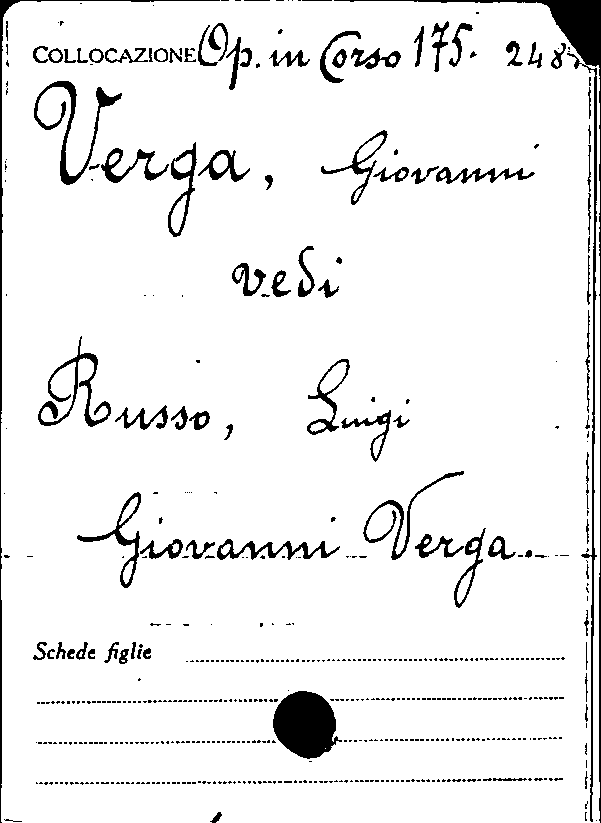 COLLOCAZIONE Op. in Corso 175. 248
Verga, Giovanni
vedi
Russo, Luigi
Giovanni Verga.
Schede figlie